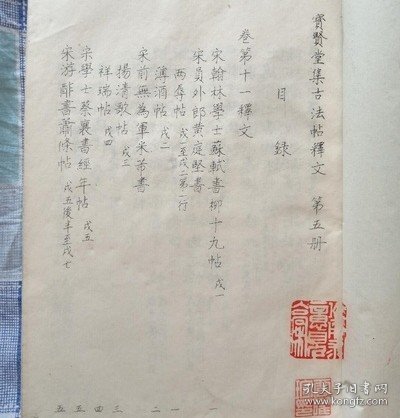 寶賢堂集古法帖釋文 第五册
目錄
卷第十一釋文
宋翰林學士蘇軾書柳十九帖 戊一
宋員外郎黄庭堅書
兩辱帖 戊一至戊二第二行
薄酒帖 戊二
宋前無為軍米芾書
揚清歌帖 戊三
祥瑞帖 戊四
宋學士蔡襄書經年帖 戊五
宋游酢書蕭條帖 戊五後半至戊七
一 一 二 三 四 五 五
孔夫子旧书网